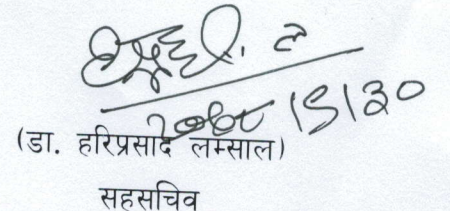 २०७८।९।३०
(डा. हरिप्रसाद लम्साल)
सहसचिव